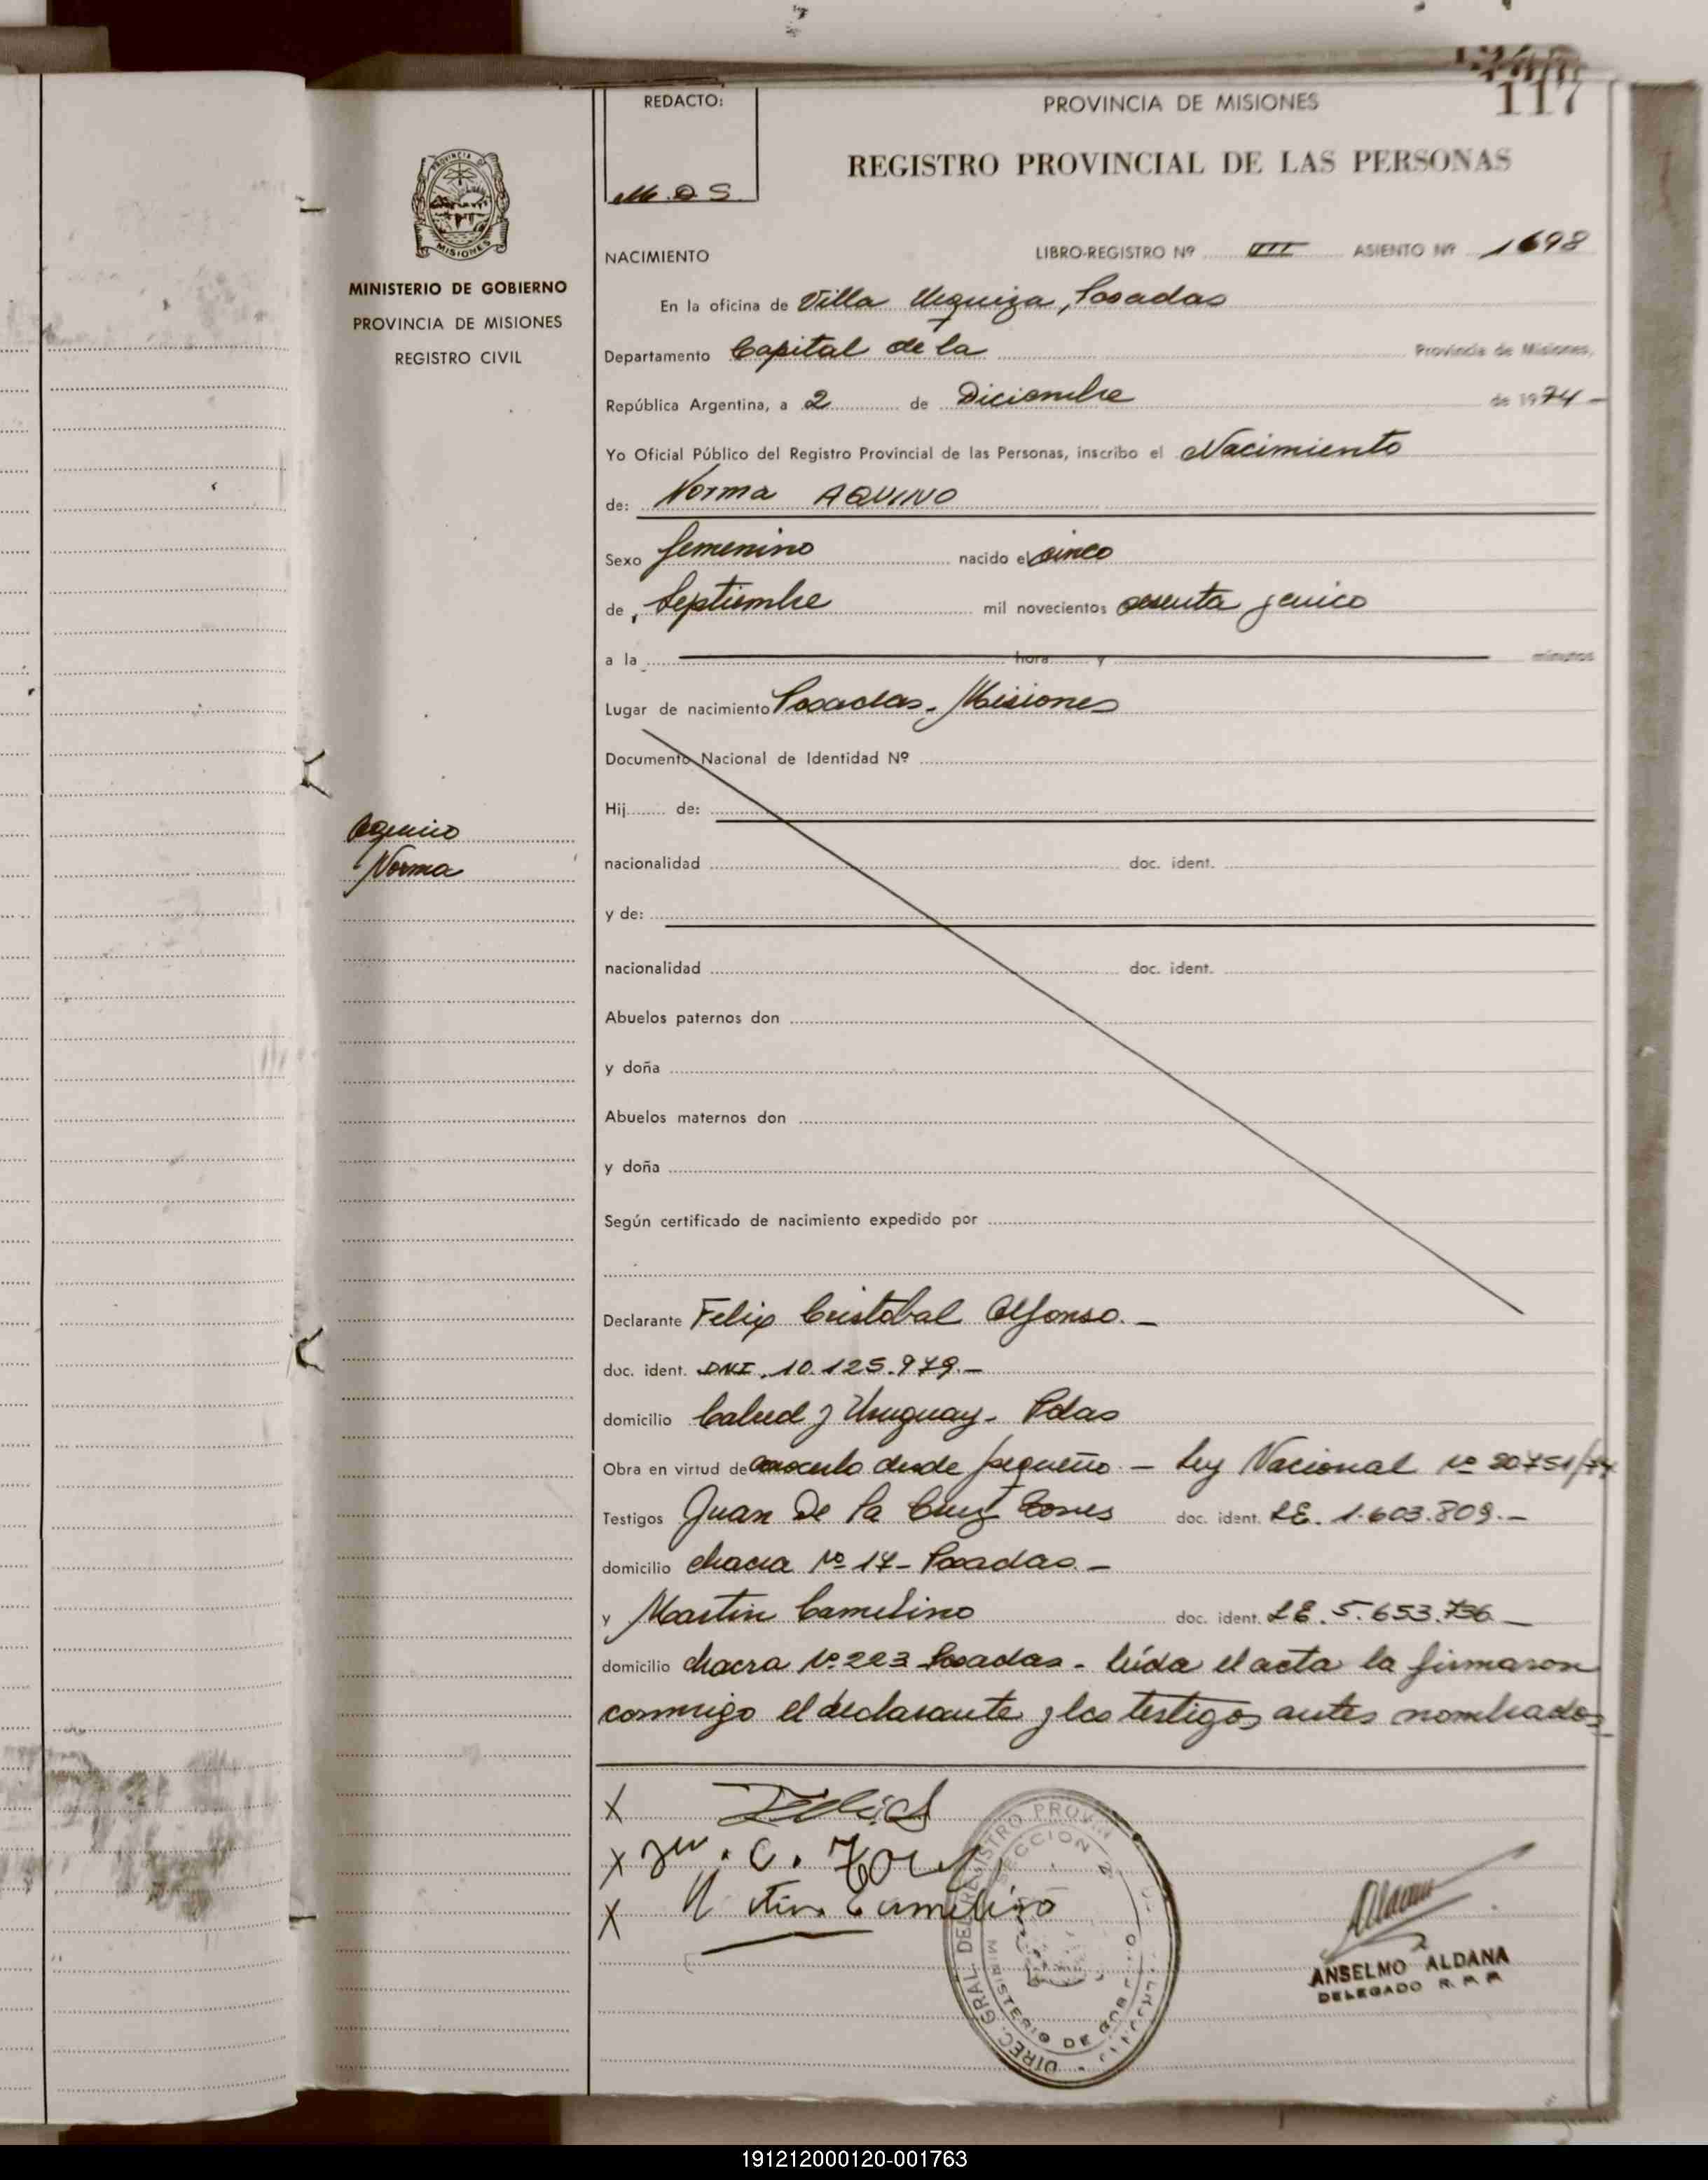 117
REDACTO:
M.Q S.
PROVINCIA DE MISIONES
REGISTRO PROVINCIAL DE LAS PERSONAS
PROVINCIA DE
MISIONES
MINISTERIO DE GOBIERNO
PROVINCIA DE MISIONES
REGISTRO CIVIL
NACIMIENTO LIBRO-REGISTRO Nº VII ASIENTO Nº 1698
En la oficina de Villa Urquiza, Posadas
Departamento Capital de la Provincia de Misiones,
República Argentina, a 2 de Diciembre de 1974 -
Yo Oficial Público del Registro Provincial de las Personas, inscribo el Nacimiento
de: Norma AQUINO
Sexo femenino nacido el cinco
de Septiembre mil novecientos
a la hora y minutos
Lugar de nacimiento Posadas - Misiones
Documento Nacional de Identidad Nº
Hij de:
Aquino
Norma
nacionalidad doc. ident.
y de:
nacionalidad doc. ident.
Abuelos paternos don
y doña
Abuelos maternos don
y doña
Según certificado de nacimiento expedido por
Declarante Felix Cristobal Alfonso. -
doc. ident. DNI. 10.125.979. -
domicilio y Uruguay - Pdas
Obra en virtud de conocerlo desde pequeño - Ley Nacional Nº 20751/74
Testigos Juan De la Cruz Torres doc. ident. LE. 1.603.809. -
domicilio chacra Nº 17 - Posadas. -
y Martin Camelino doc. ident. LE. 5.653.736 -
domicilio chacra Nº 223 Posadas - leída el acta la firmaron
conmigo el declarante y los testigos antes nombrados
X
X C. Torres
X Camelino
DIREC. GRAL. DEL REGISTRO PROVIN
SECCION
MINISTERIO DE GOB
Aldana
ANSELMO ALDANA
DELEGADO R.
191212000120-001763